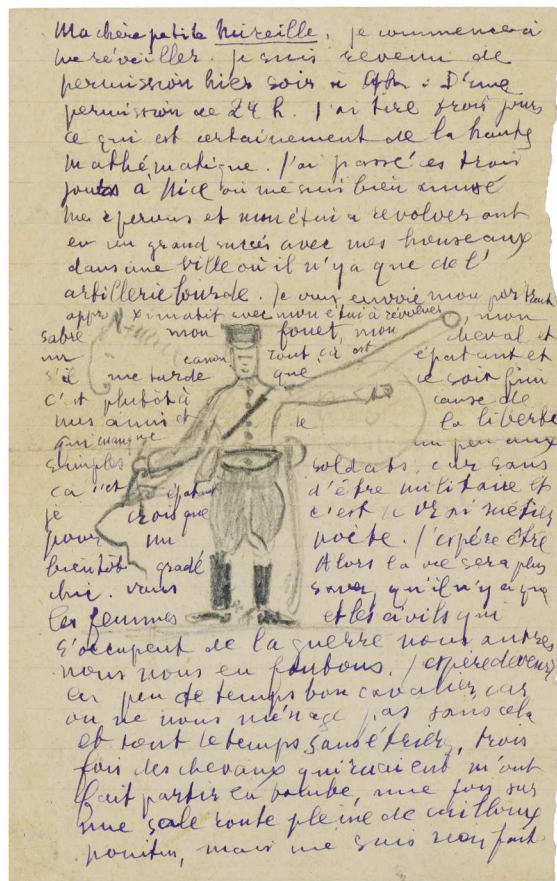 Ma chère petite Mireille, je commence à
me réveiller. je suis revenu de
permission hier soir à D'une
permission de 24 h. j'ai tiré trois jours
ce qui est certainement de la haute
mathématique. j'ai passé ces trois
jours à Nice où me suis bien amusé
mes éperons et mon étui a revolver ont
eu un grand succès avec mes houseaux
dans une ville où il n'y a que de l'
artillerie lourde. je vous envoie mon portrait
approximatif avec mon étui à révolver, mon
sabre mon fouet, mon cheval et
un canon, tout ça est épatant et
s'il me tarde que ce soit fini
c'est plutôt à cause de
mes amis et de la liberté
qui manque un peu aux
simples soldats, car sans
ça c'est épatant d'être militaire et
je crois que c'est le vrai métier
pour un poète. j'espère être
bientôt gradé Alors la vie sera plus
chic. vous savez qu'il n'y a que
les femmes et les civils qui
s'occupent de la guerre nous autres
nous nous en foutons. j'espère devenir
en peu de temps bon cavalier car
on ne nous ménage pas sans cela
et tout le temps sans étriers, trois
fois des chevaux qui ruaient m'ont
fait partir en une fois sur
une sale route pleine de cailloux
pointus, mais me suis rien fait